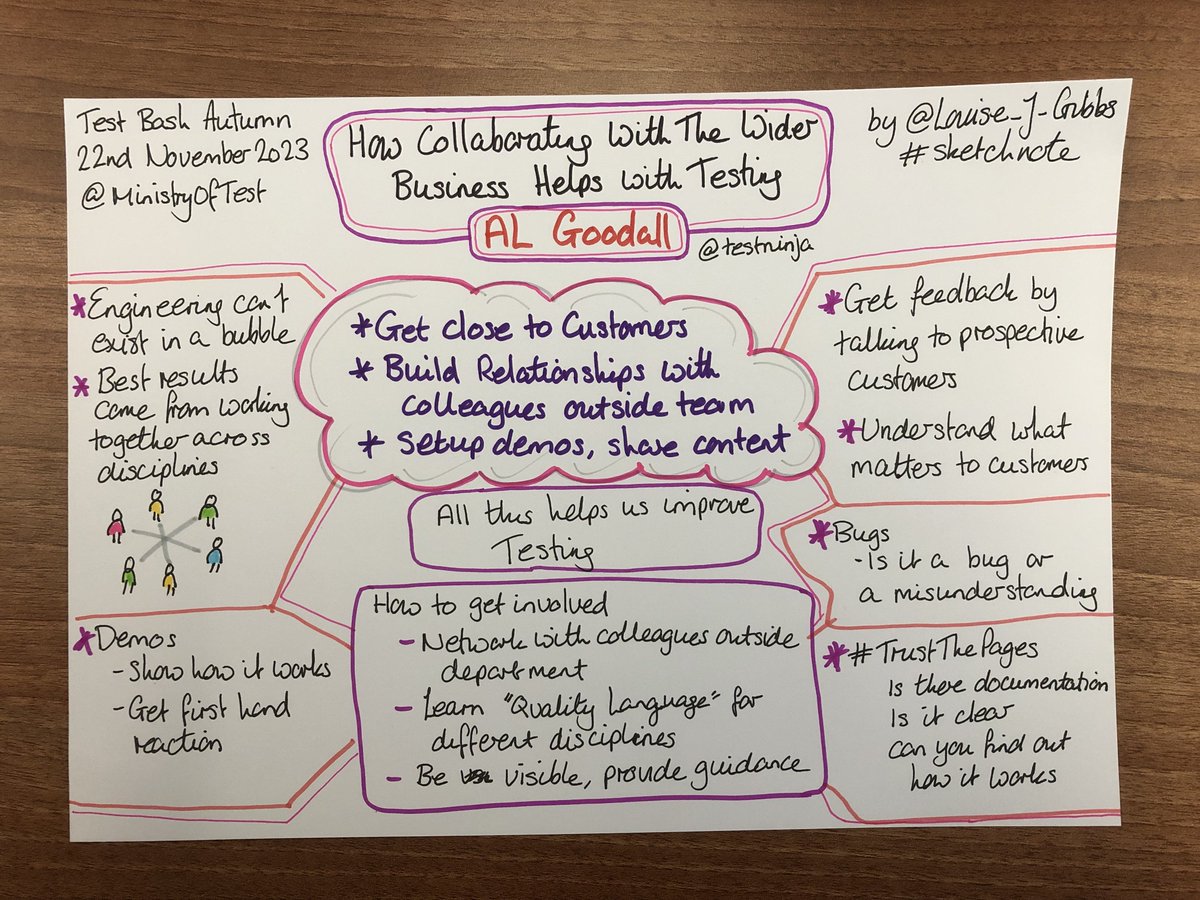 Test Bash Autumn
22nd November 2023
@MinistryOfTest
How Collaborating With The Wider
Business Helps with Testing
AL Goodall
@testninja
by @Louise_J_Gibbs
#sketchnote
*Engineering can't
exist in a bubble
* Best results
come from working
together across
disciplines
*Demos
- Show how it works
- Get first hand
reaction
*Get close to Customers
* Build Relationships with
colleagues outside team
* Setup demos, share content
All this helps us improve
Testing
How to get involved
- Network with colleagues outside
department
- Learn "Quality Language" for
different disciplines
- Be visible, provide guidance
*Get feedback by
talking to prospective
customers
*Understand what
matters to customers
*Bugs
- Is it a bug or
a misunderstanding
* #TrustThePages
Is there documentation
Is it clear
can you find out
how it works